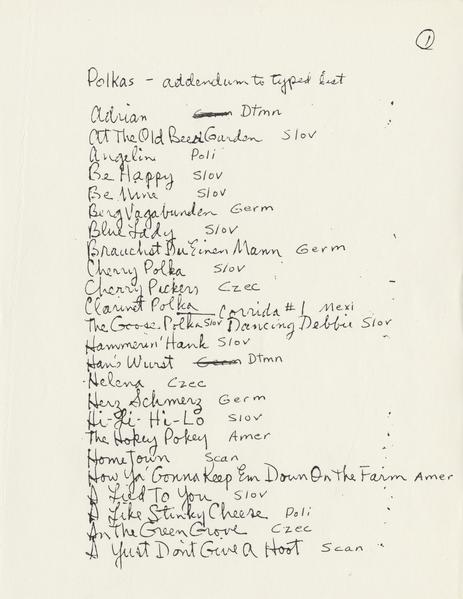 1
Polkas - addendum to typed list
Adrian Dtmn
At The Old Beer Garden Slov
Angelin Poli
Be Happy Slov
Be Mine Slov
Berg Vagabunden Germ
Blue Lady Slov
Brauchst Du Einen Mann Germ
Cherry Polka Slov
Cherry Pickers Czec
Clarinet Polka Corrida #1 Mexi
The Goose Polka Slov Dancing Debbie Slov
Hammerin' Hank Slov
Han's Wurst Dtmn
Helena Czec
Herz Schmerz Germ
Hi-Li-Hi-Lo Slov
The Hokey Pokey Amer
Home Town Scan
How Ya' Gonna Keep Em Down On The Farm Amer
I Lied To You Slov
I Like Stinky Cheese Poli
In The Green Grove Czec
I Yust Don't Give A Hoot Scan